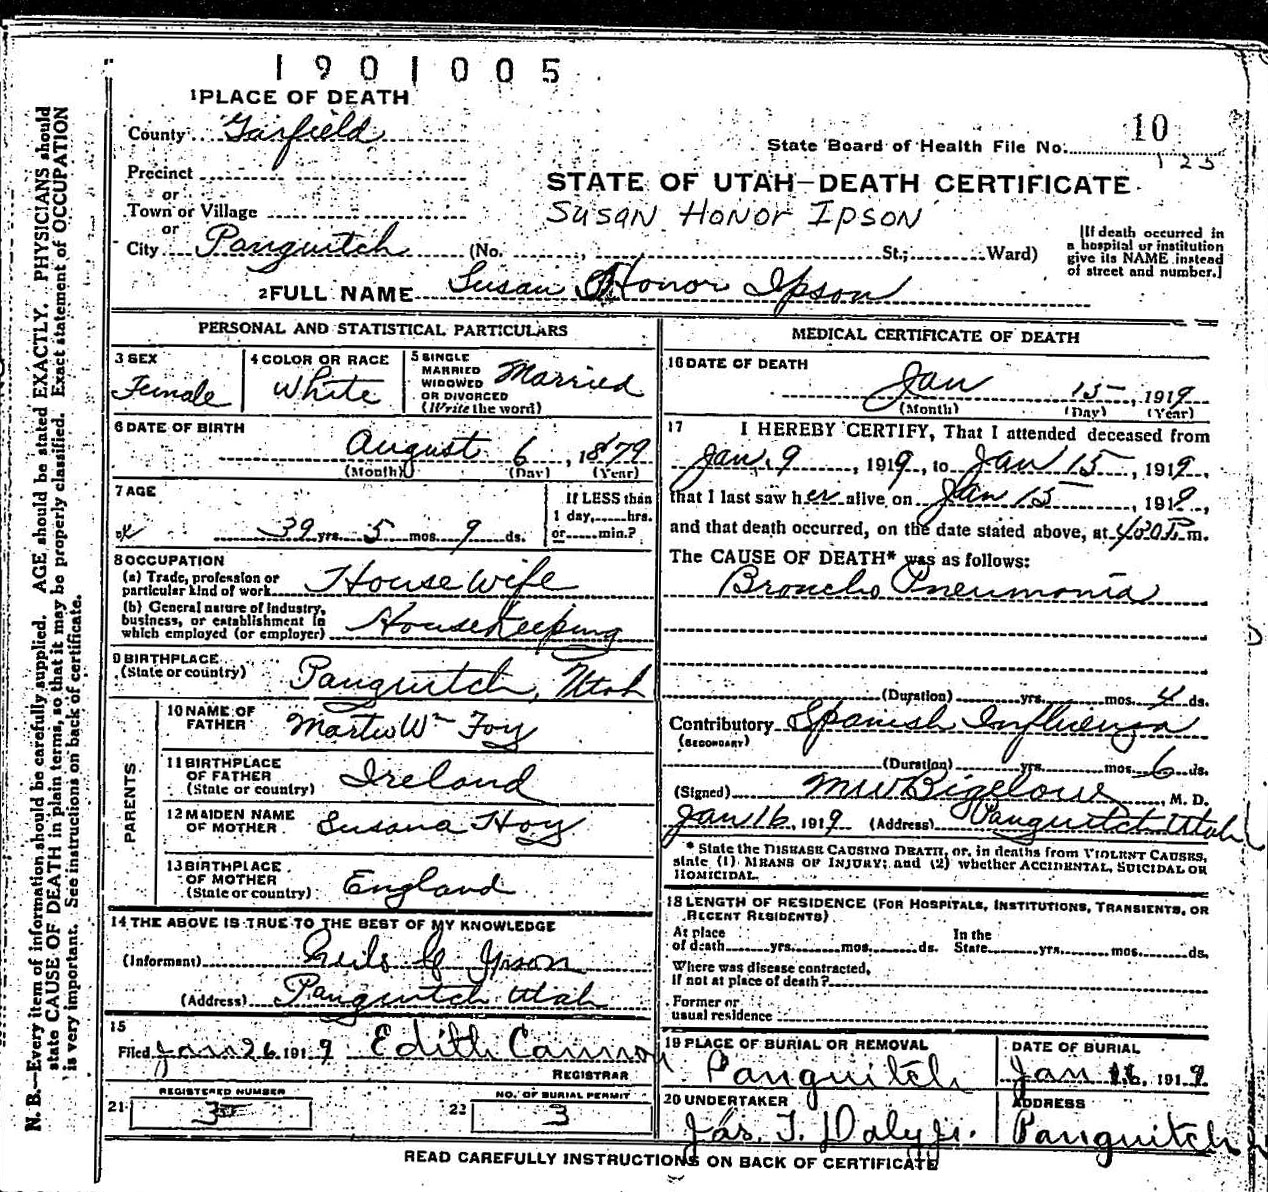 1901005
1 PLACE OF DEATH
County Garfield
10
State Board of Health File No.
125
Precinct
or
Town or Village
or
City Panguitch (No. , St.; Ward)
STATE OF UTAH—DEATH CERTIFICATE
SUSAN HONOR IPSON
[If death occurred in
a hospital or institution
give its NAME instead
of street and number.]
2 FULL NAME Susan Honor Ipson
PERSONAL AND STATISTICAL PARTICULARS
3 SEX
Female
4 COLOR OR RACE
White
5 SINGLE
MARRIED
WIDOWED
OR DIVORCED
(Write the word)
Married
6 DATE OF BIRTH
August 6, 1879
(Month) (Day) (Year)
7 AGE
39 yrs. 5 mos. 9 ds.
If LESS than
1 day, hrs.
or min.?
8 OCCUPATION
(a) Trade, profession or
particular kind of work House Wife
(b) General nature of industry,
business, or establishment in
which employed (or employer) Housekeeping
9 BIRTHPLACE
(State or country) Panguitch, Utah
PARENTS
10 NAME OF
FATHER Wm Foy
11 BIRTHPLACE
OF FATHER
(State or country) Ireland
12 MAIDEN NAME
OF MOTHER Susana Hoy
13 BIRTHPLACE
OF MOTHER
(State or country) England
14 THE ABOVE IS TRUE TO THE BEST OF MY KNOWLEDGE
(Informant) Ipson
(Address) Panguitch Utah
15
Filed Jan 26, 1919 Edith
REGISTRAR
REGISTERED NUMBER
21 3
NO. OF BURIAL PERMIT
22 3
MEDICAL CERTIFICATE OF DEATH
16 DATE OF DEATH
Jan 15, 1919
(Month) (Day) (Year)
17 I HEREBY CERTIFY, That I attended deceased from
Jan. 9, 1919, to Jan 15, 1919,
that I last saw her alive on Jan 15, 1919,
and that death occurred, on the date stated above, at 430 P.m.
The CAUSE OF DEATH* was as follows:
Broncho Pneumonia
(Duration) yrs. mos. 4 ds.
Contributory Spanish Influenza
(SECONDARY)
(Duration) yrs. mos. 6 ds.
(Signed) MW Bigelow, M. D.
Jan 16, 1919 (Address) Panguitch Utah
* State the DISEASE CAUSING DEATH, or, in deaths from VIOLENT CAUSES,
state (1) MEANS OF INJURY; and (2) whether ACCIDENTAL, SUICIDAL OR
HOMICIDAL.
18 LENGTH OF RESIDENCE (FOR HOSPITALS, INSTITUTIONS, TRANSIENTS, OR
RECENT RESIDENTS)
At place
of death yrs. mos. ds.
In the
State yrs. mos. ds.
Where was disease contracted,
if not at place of death?
Former or
usual residence
19 PLACE OF BURIAL OR REMOVAL
Panguitch
DATE OF BURIAL
Jan 16, 1919
20 UNDERTAKER
Jas. T. Daly Jr.
ADDRESS
Panguitch
READ CAREFULLY INSTRUCTIONS ON BACK OF CERTIFICATE
N. B.—Every item of information should be carefully supplied. AGE should be stated EXACTLY. PHYSICIANS should
state CAUSE OF DEATH in plain terms, so that it may be properly classified. Exact statement of OCCUPATION
is very important. See instructions on back of certificate.